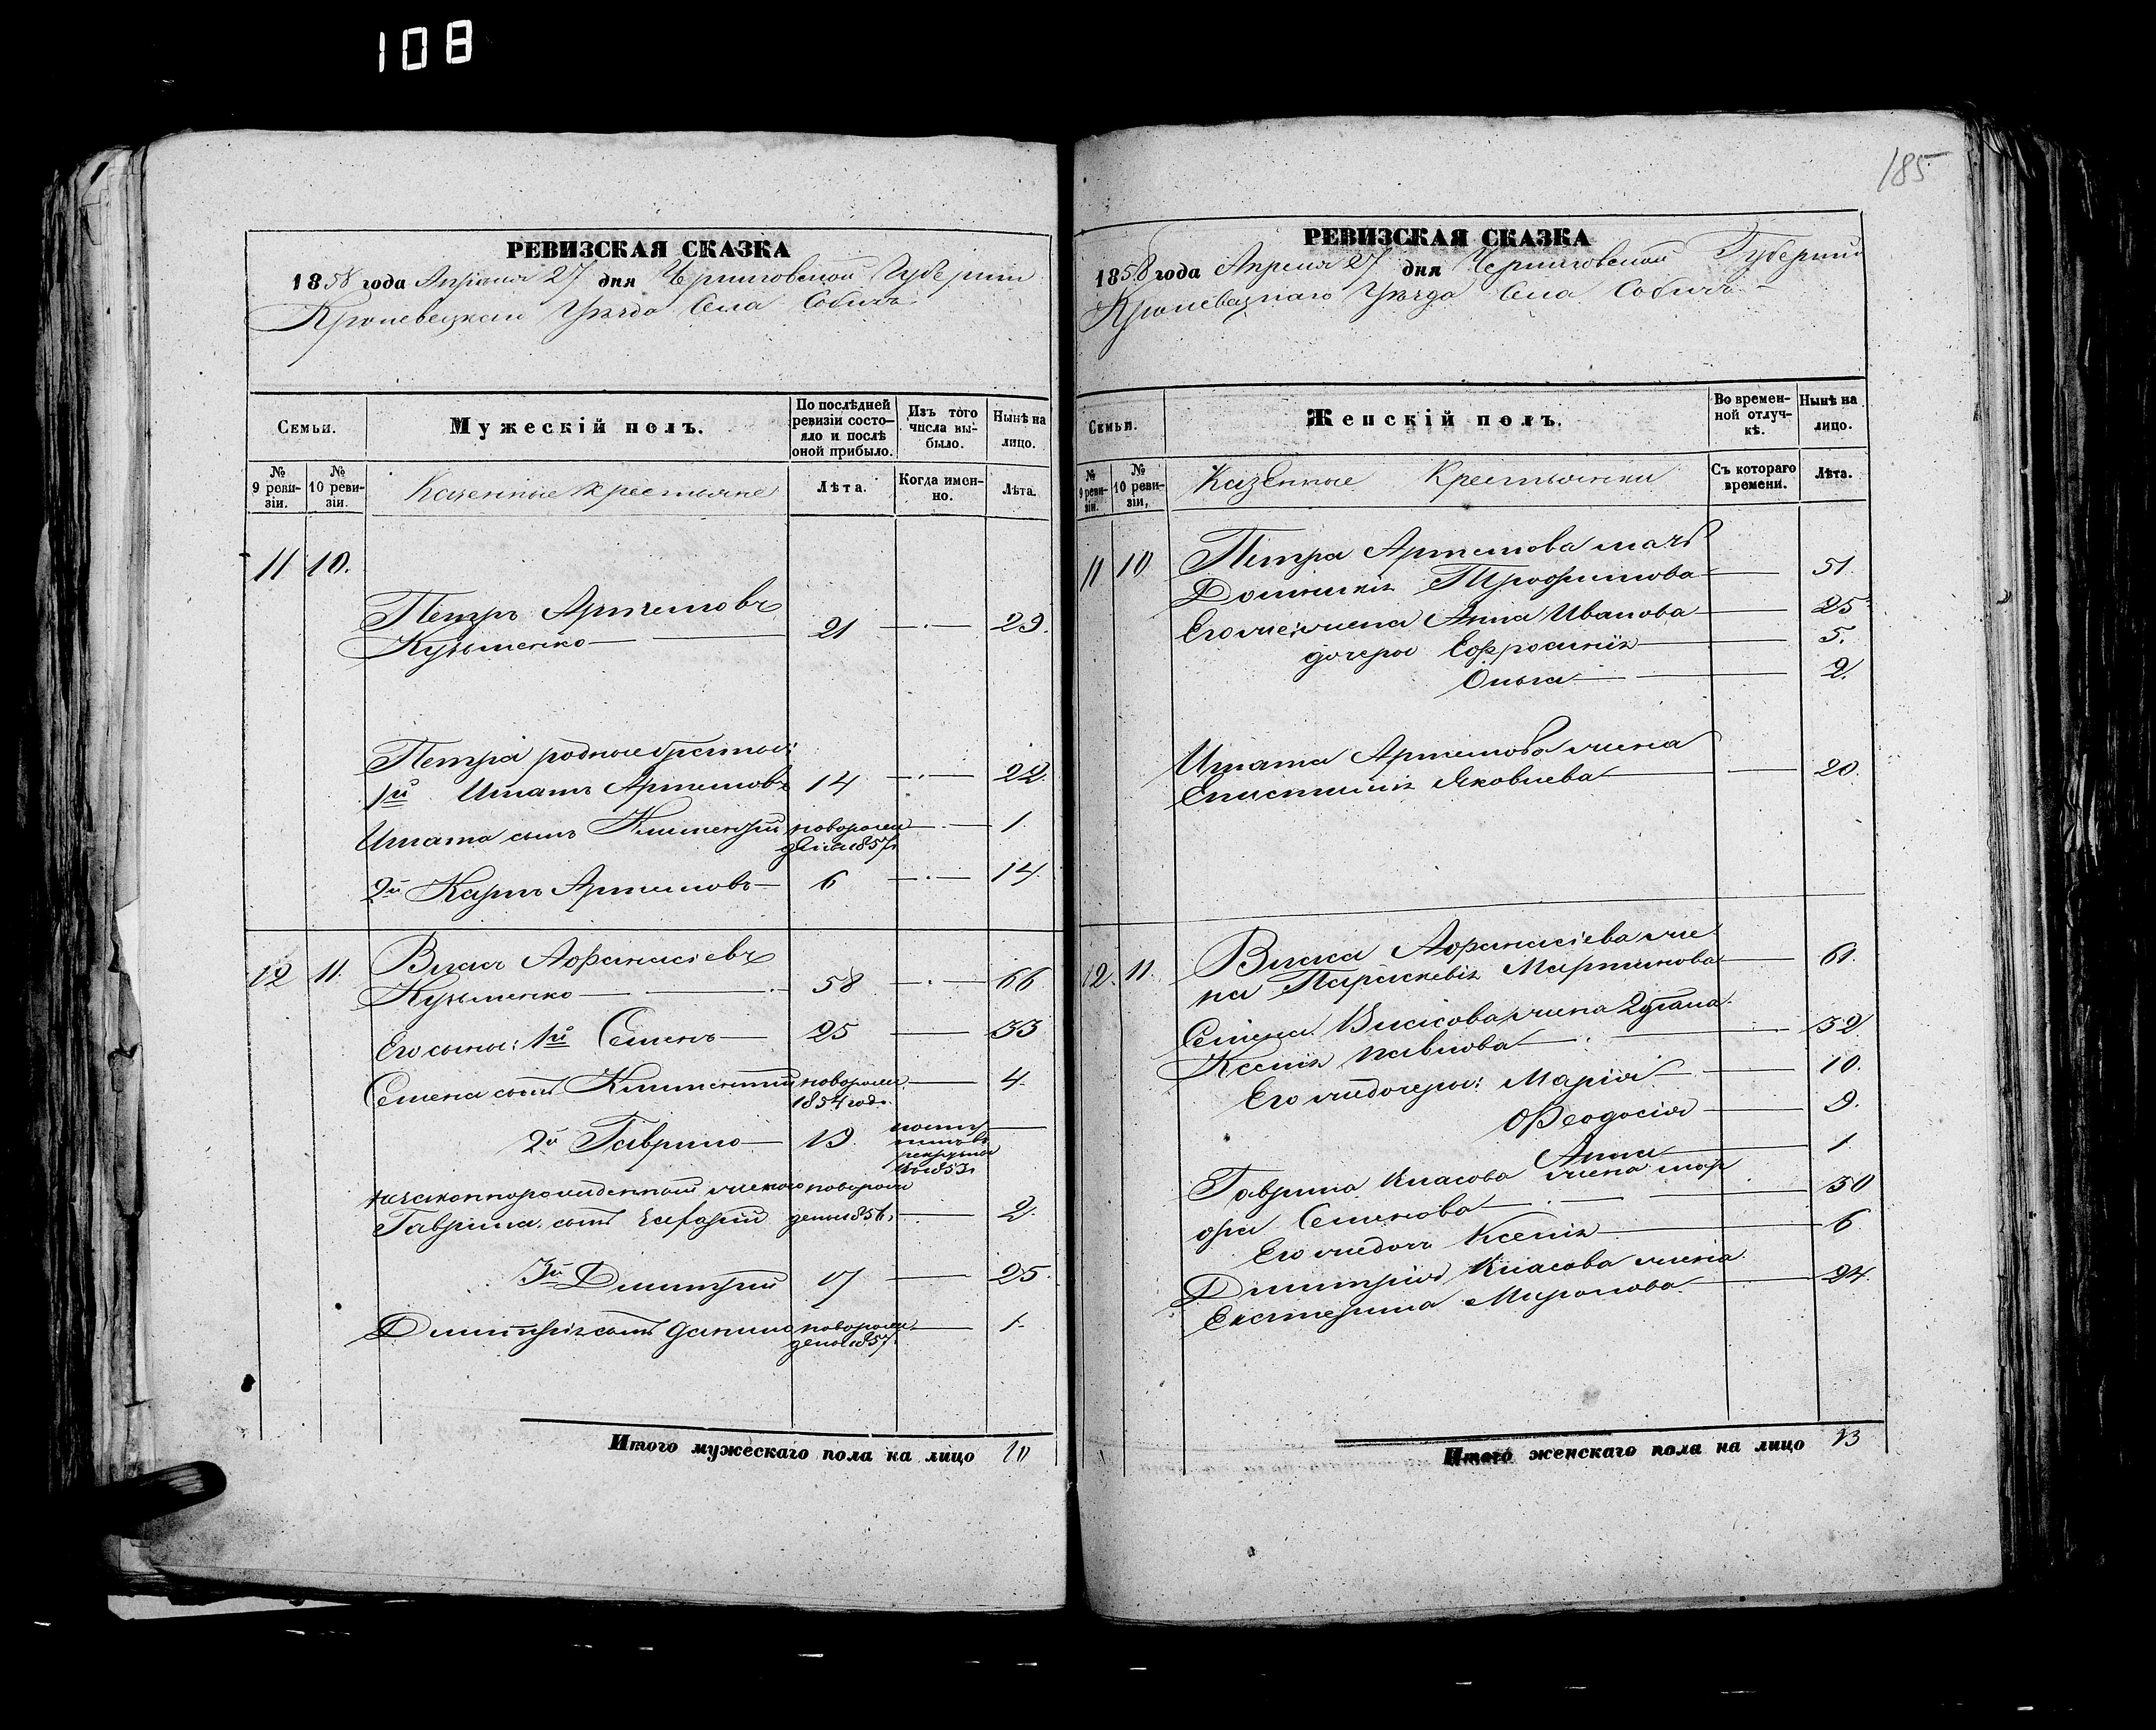 108
РЕВИЗСКАЯ СКАЗКА
1858 года Апреля 27 дня Черниговской Губернии
Кролевецкаго Уезда Села Собичъ
Семьи.
Мужескій полъ.
По послѣдней ревизіи состояло и послѣ оной прибыло.
Изъ того числа выбыло.
Нынѣ на лицо.
№ 9 ревизіи.
№ 10 ревизіи.
Казенные крестьяне
Лѣта.
Когда именно.
Лѣта.
11 10.
Петръ Артемовъ
Кузьменко 21 29.
Петра родные братья:
1й Игнатъ Артемовъ 14 22.
Игната сынъ Климентій новорожденъ 1857 1
2й Карпъ Артемовъ 6 14.
12 11. Власъ Афанасіевъ
Кузьменко 58 66
Его сыны: 1й Семенъ 25 33
Семена сынъ Климентій новорожд. 1854 год. 4.
2й Гаврило 19.
Гаврила сынъ 1856 2.
3й Дмитрій 17 25.
Дмитрія сынъ Данило новорожденъ 1857 1.
Итого мужескаго пола на лицо 10
185
РЕВИЗСКАЯ СКАЗКА
1858 года Апреля 27 дня Черниговской Губерніи
Кролевецкаго Уезда Села Собичъ
Семьи.
Женскій полъ.
Во временной отлучкѣ.
Нынѣ на лицо.
№ 9 ревизіи.
№ 10 ревизіи,
Казенные Крестьянки
Съ котораго времени.
Лѣта.
11 10 Петра Артемова мать
Домникія Трофимова 51.
Его жена Анна Иванова 25
дочери Ефросинія 5.
Ольга 2.
Игната Артемова жена
Епистимія Яковлева 20.
12. 11. Власа Афанасіева же
на Параскевія Мартинова 61.
Семена Власова жена 2 брака
Ксенія Павлова 32
Его же дочери: Марія 10.
Феодосія 9.
Анна 1.
Гаврила Власова жена Мар
фа Семенова 30
Его же дочь Ксенія 6
Дмитрія Власова жена
Екатерина Миронова 24.
Итого женскаго пола на лицо 13